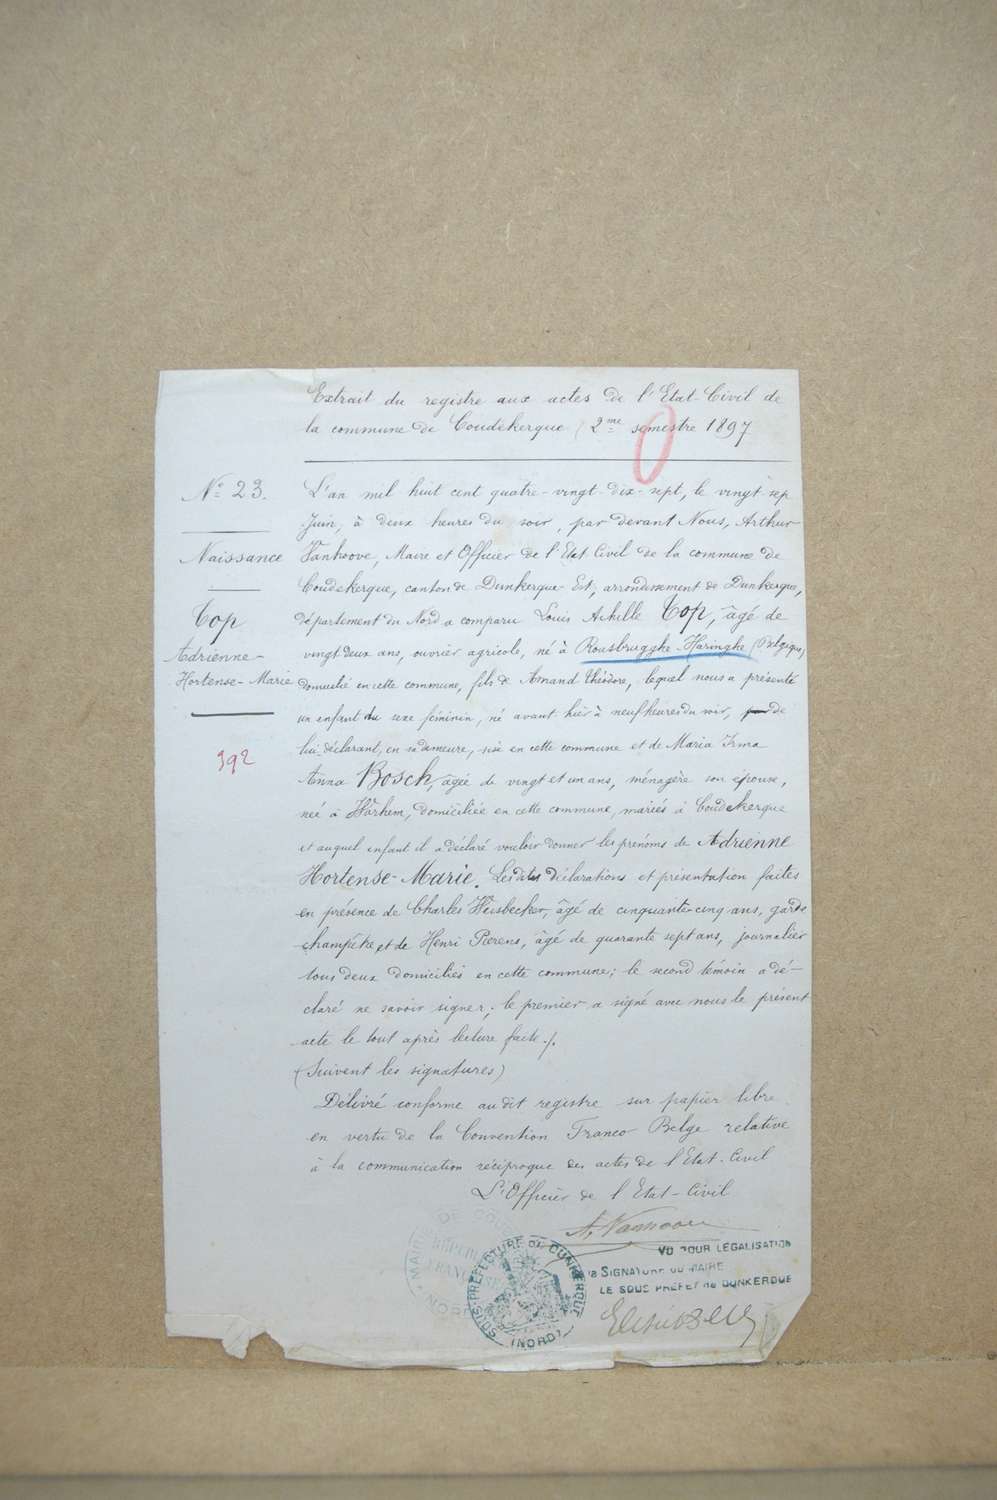 Extrait du registre aux actes de l'Etat-Civil de
la commune de Coudekerque (2me semestre 1897
0
No 23.
Naissance
Top
Adrienne-
Hortense-Marie
392
L'an mil huit cent quatre-vingt-dix-sept, le vingt-sep
Juin, à deux heures du soir, par devant Nous, Arthur
Vanhoove, Maire et Officier de l'Etat Civil de la commune de
Coudekerque, canton de Dunkerque-Est, arrondissement de Dunkerque,
département du Nord a comparu Louis Achille Top, âgé de
vingt deux ans, ouvrier agricole, né à Rousbrugghe-Haringhe (Belgique)
domicilié en cette commune, fils de Amand Théodore, lequel nous a présenté
un enfant du sexe féminin, né avant-hier à neuf heures du soir, de
lui déclarant, en sa demeure, sise en cette commune et de Maria Irma
Anna Bosch, âgée de vingt et un ans, ménagère son épouse,
née à Warhem, domiciliée en cette commune, mariés à Coudekerque
et auquel enfant il a déclaré vouloir donner les prénoms de Adrienne
Hortense-Marie. Lesdites déclarations et présentation faites
en présence de Charles Weisbecker, âgé de cinquante-cinq ans, garde
champêtre et de Henri Pierens, âgé de quarante sept ans, journalier
tous deux domiciliés en cette commune; le second témoin a dé-
claré ne savoir signer; le premier a signé avec nous le présent
acte le tout après lecture faite./.
(Suivent les signatures)
Délivré conforme audit registre sur papier libre
en vertu de la Convention Franco Belge relative
à la communication réciproque des actes de l'Etat-Civil
L'Officier de l'Etat-Civil
A. Vanhoove
MAIRIE DE COUDEKERQUE
REPUBLIQUE FRANCAISE
SOUS-PREFECTURE DE DUNKERQUE
(NORD)
VU POUR LÉGALISATION
la SIGNATURE DU MAIRE
LE SOUS PRÉFET de DUNKERQUE